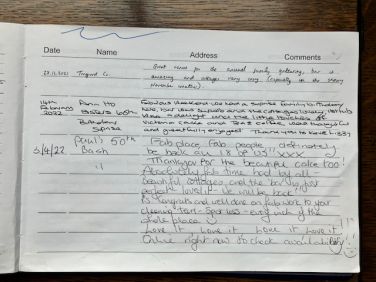 Date Name Address Comments
Great venue for the annual family gathering, bar is
27.12.2021 amazing and cottages very cosy (especially in the stormy
November weather).
14th Ann Ho Fabulous Weekend we had a Suprise family birthday
February Sisters 60th here, Bar was Superb and the cottages lovely. Hot tub
2022 Birthday was a delight and the little touches of
Suprise Victoria cake and tea coffee were thoughtful
and gratefully enjoyed. Thank you to Kate & Lizzy
Paul's 50th Fab place, Fab people, definately
3/4/22 Bash be back all 18 of us" xxx
" Thankyou for the beautiful cake too!
Absolutely fab time had by all -
beautiful cottages, and the bar was just
perfect - loved it - we will be back!
Ps Congrats and well done on fab work to your
cleaning team - spotless - every inch of the
whole place
Love it, Love it, Love it Love it!
Online right now to check availability!